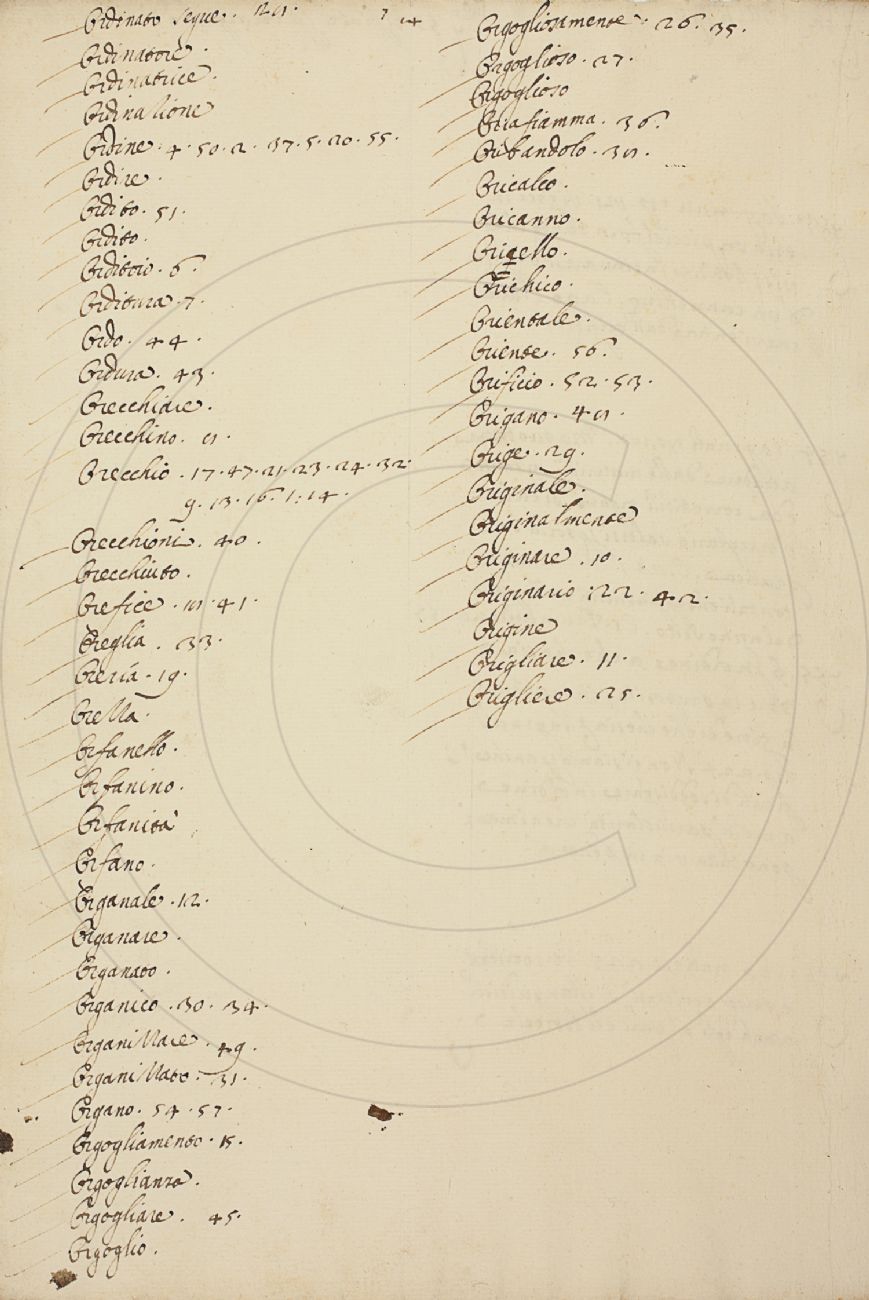 Ordinato segue.
Ordinatore.
Ordinatrice.
Ordinazione
Ordine. 4. 50. 2. 37. 5. 20. 55.
Ordire.
Ordito. 51.
Ordito.
Orditoio. 6.
Orditura. 7.
Ordo. 44.
Ordura. 43.
Orecchiare.
Orecchino.
Orecchio. 17. 47. 21. 23. 24. 32.
9. 13. 16. 1. 14.
Orecchioni. 40.
Orecchiuto.
Orefice. 41.
Oreglia. 33.
Oreria. 19.
Orezza.
Orfanello.
Orfanino.
Orfanità
Orfano.
Organale. 12.
Organare.
Organato.
Organico. 30. 34.
Organizzare. 49.
Organizzato. 31.
Organo. 54. 57.
Orgogliamento. 15.
Orgoglianza.
Orgogliare. 45.
Orgoglio.
Orgogliosamente. 26. 35.
Orgoglioso. 27.
Orgoglioso
Oriafiamma. 36.
Oribandolo.
Oricalco.
Oricanno.
Oricello.
Orichico.
Orientale.
Oriente. 56.
Orificio. 52. 53.
Origano.
Orige. 29.
Originale.
Originalmente
Originare. 10.
Originario: 22. 42.
Origine
Origliare. 11.
Origliere. 25.